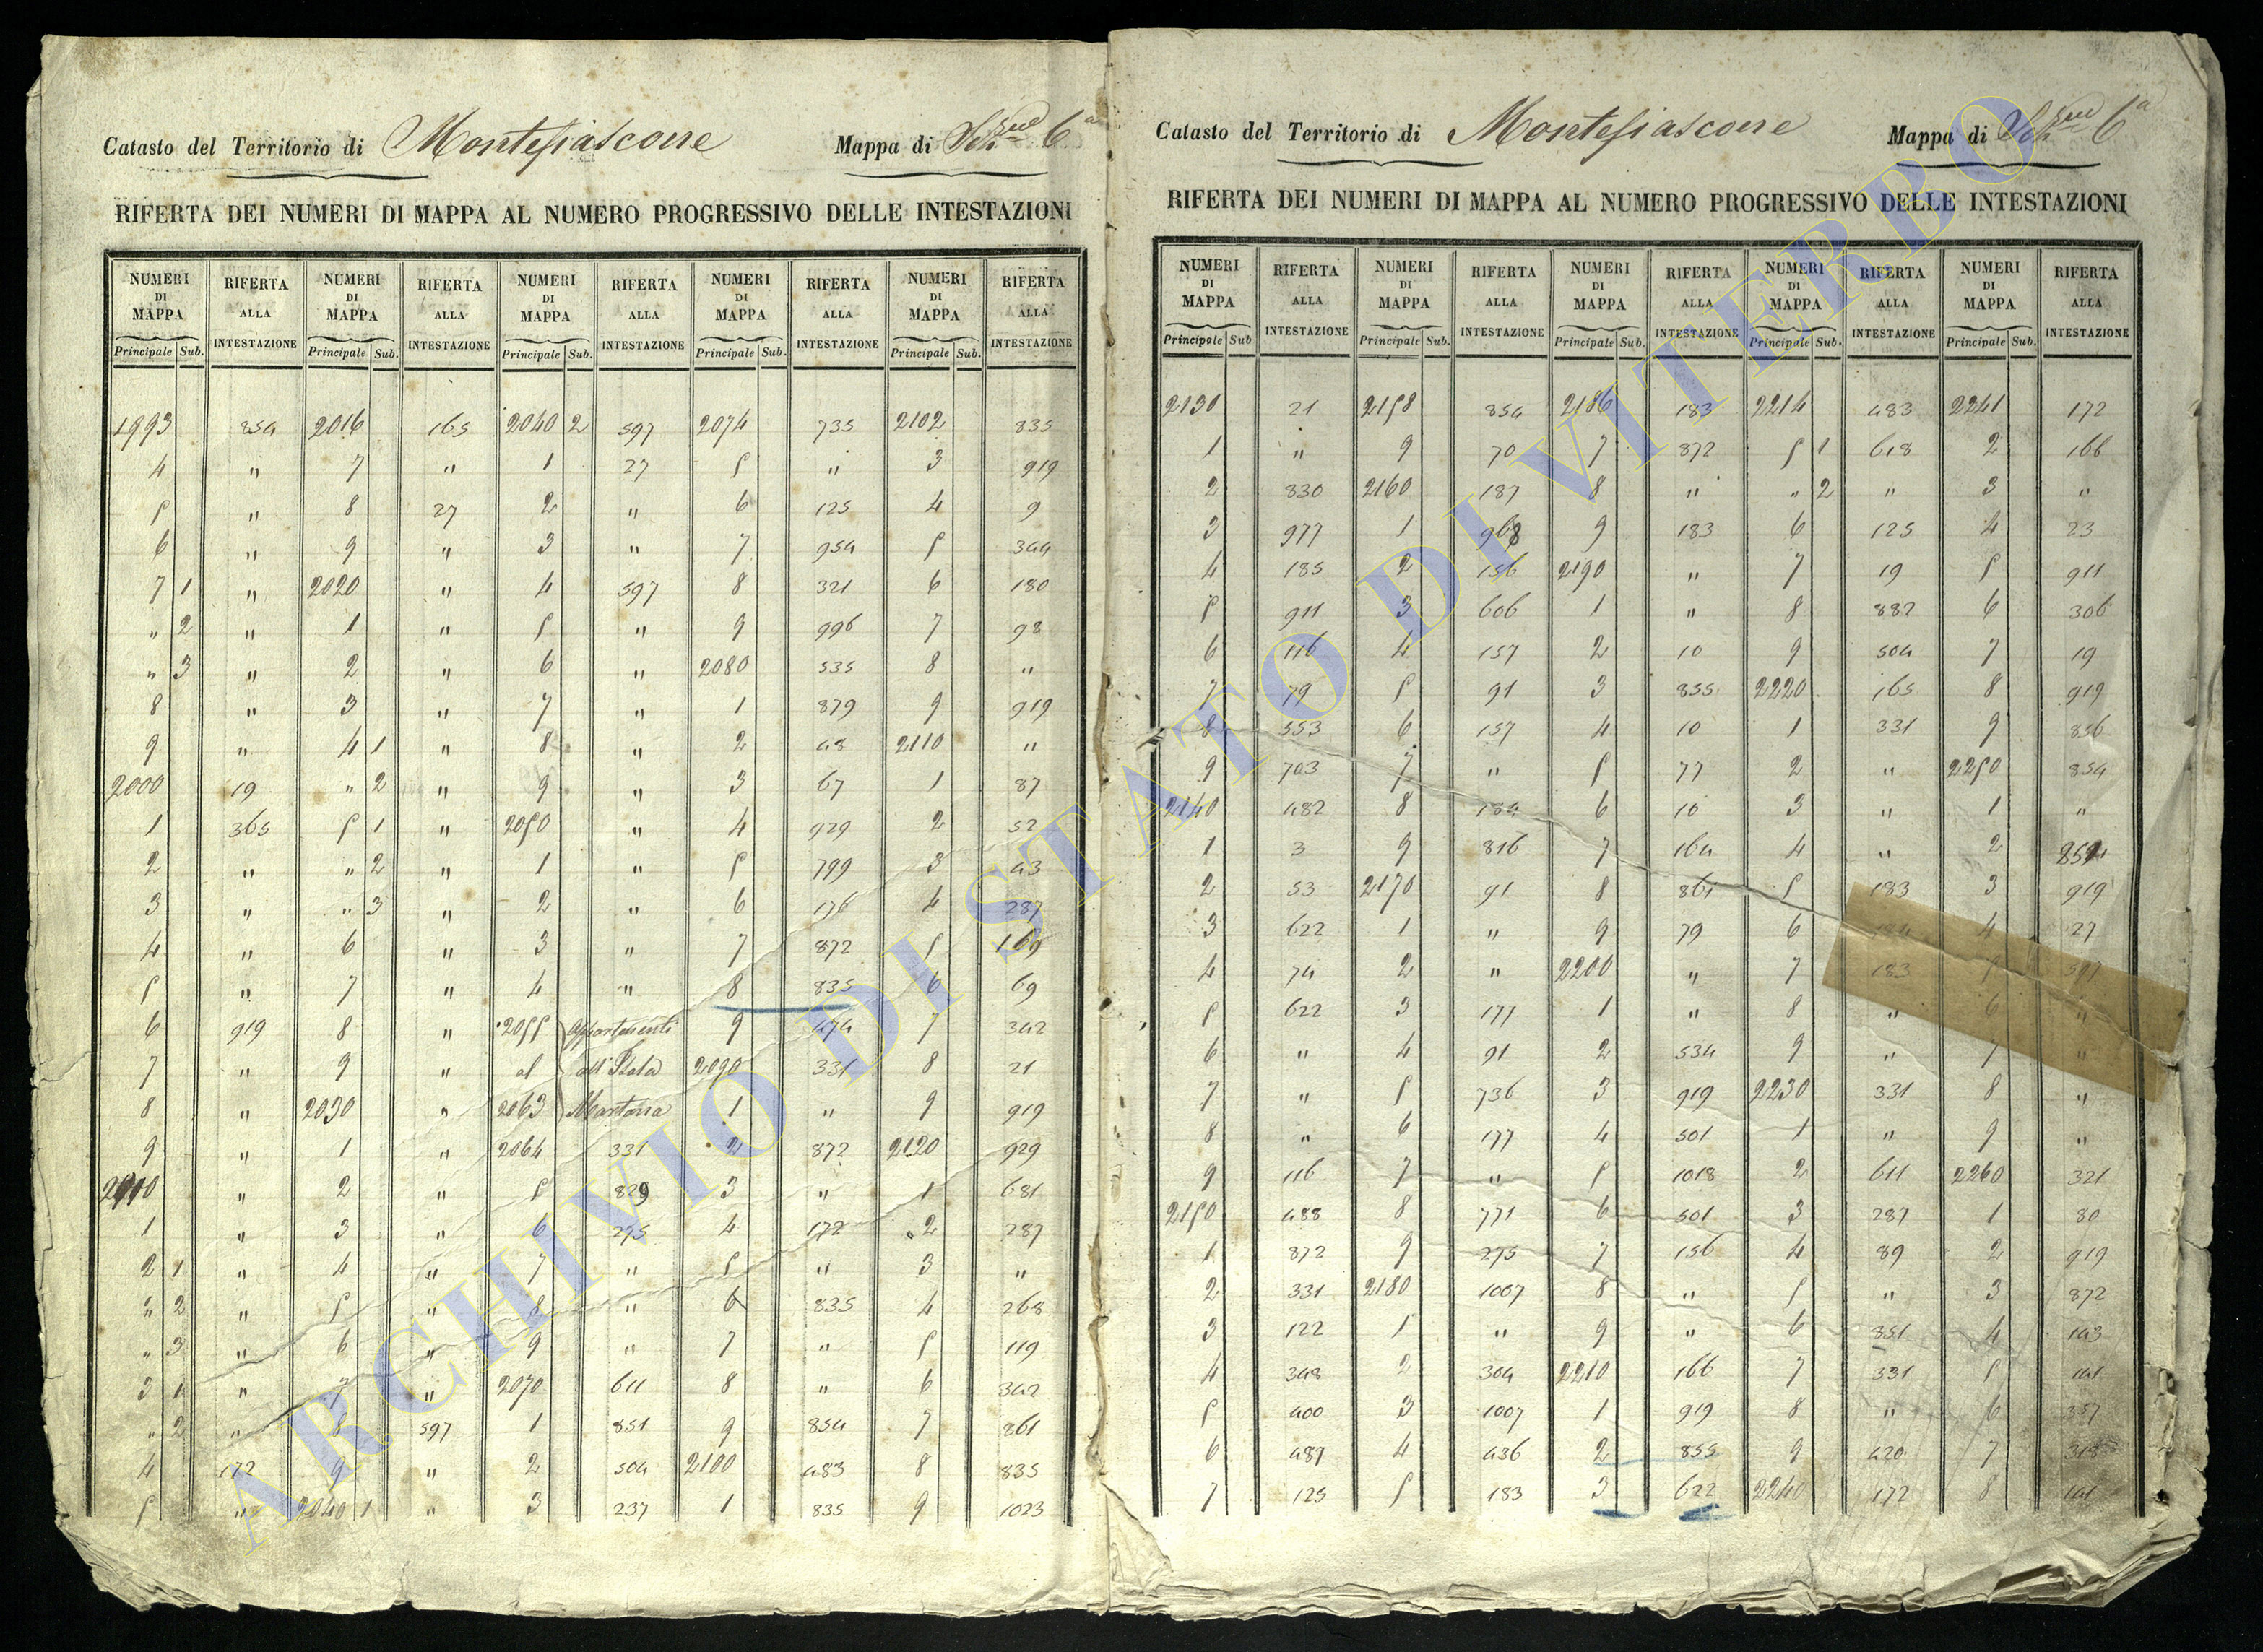 Catasto del Territorio di Montefiascone Mappa di Sez.ne 6a
RIFERTA DEI NUMERI DI MAPPA AL NUMERO PROGRESSIVO DELLE INTESTAZIONI
NUMERI DI MAPPA RIFERTA ALLA INTESTAZIONE NUMERI DI MAPPA RIFERTA ALLA INTESTAZIONE NUMERI DI MAPPA RIFERTA ALLA INTESTAZIONE NUMERI DI MAPPA RIFERTA ALLA INTESTAZIONE NUMERI DI MAPPA RIFERTA ALLA INTESTAZIONE
Principale Sub. Principale Sub. Principale Sub. Principale Sub. Principale Sub.
1993 854 2016 165 2040 2 597 2074 735 2102 835
4 " 7 " 1 27 5 " 3 919
5 " 8 27 2 " 6 125 4 9
6 " 9 " 3 " 7 954 5 344
7 1 " 2020 " 4 597 8 321 6 180
" 2 " 1 " 5 " 9 996 7 98
" 3 " 2 " 6 " 2080 535 8 "
8 " 3 " 7 " 1 879 9 919
9 " 4 1 " 8 " 2 48 2110 "
2000 19 " 2 " 9 " 3 67 1 87
1 365 5 1 " 2050 " 4 929 2 52
2 " " 2 " 1 " 5 799 3 43
3 " " 3 " 2 " 6 176 4 287
4 " 6 " 3 " 7 872 5 169
5 " 7 " 4 " 8 835 6 69
6 919 8 " 2055 appartenenti 9 474 7 342
7 " 9 " al all' Isola 2090 331 8 21
8 " 2030 " 2063 Martana 1 " 9 919
9 " 1 " 2064 331 2 872 2120 929
2010 " 2 " 5 829 3 " 1 681
1 " 3 " 6 275 4 172 2 287
2 1 " 4 " 7 " 5 " 3 "
" 2 " 5 " 8 " 6 835 4 268
" 3 " 6 " 9 " 7 " 5 119
3 1 " 7 " 2070 611 8 " 6 342
" 2 " 8 597 1 851 9 854 7 861
4 172 9 " 2 504 2100 483 8 835
5 " 2040 1 " 3 237 1 835 9 1023
Catasto del Territorio di Montefiascone Mappa di Sez.ne 6a
RIFERTA DEI NUMERI DI MAPPA AL NUMERO PROGRESSIVO DELLE INTESTAZIONI
NUMERI DI MAPPA RIFERTA ALLA INTESTAZIONE NUMERI DI MAPPA RIFERTA ALLA INTESTAZIONE NUMERI DI MAPPA RIFERTA ALLA INTESTAZIONE NUMERI DI MAPPA RIFERTA ALLA INTESTAZIONE NUMERI DI MAPPA RIFERTA ALLA INTESTAZIONE
Principale Sub Principale Sub. Principale Sub. Principale Sub. Principale Sub.
2130 21 2158 854 2186 183 2214 483 2241 172
1 " 9 70 7 872 5 1 618 2 166
2 830 2160 187 8 " " 2 " 3 "
3 977 1 968 9 183 6 125 4 23
4 185 2 156 2190 " 7 19 5 911
5 911 3 606 1 " 8 882 6 306
6 116 4 157 2 10 9 504 7 19
7 79 5 91 3 835 2220 165 8 919
8 553 6 157 4 10 1 331 9 856
9 703 7 " 5 77 2 " 2250 854
2140 482 8 184 6 10 3 " 1 "
1 3 9 816 7 164 4 " 2 854
2 53 2170 91 8 861 5 183 3 919
3 622 1 " 9 79 6 184 4 27
4 74 2 " 2200 " 7 183 5 597
5 622 3 177 1 " 8 " 6 "
6 " 4 91 2 534 9 " 7 "
7 " 5 736 3 919 2230 331 8 "
8 " 6 177 4 501 1 " 9 "
9 116 7 " 5 1018 2 611 2260 321
2150 488 8 771 6 501 3 287 1 80
1 872 9 275 7 156 4 89 2 919
2 331 2180 1007 8 " 5 " 3 872
3 122 1 " 9 " 6 851 4 143
4 348 2 304 2210 166 7 331 5 141
5 400 3 1007 1 919 8 " 6 357
6 487 4 436 2 855 9 420 7 318
7 125 5 183 3 622 2240 172 8 141
ARCHIVIO DI STATO DI VITERBO